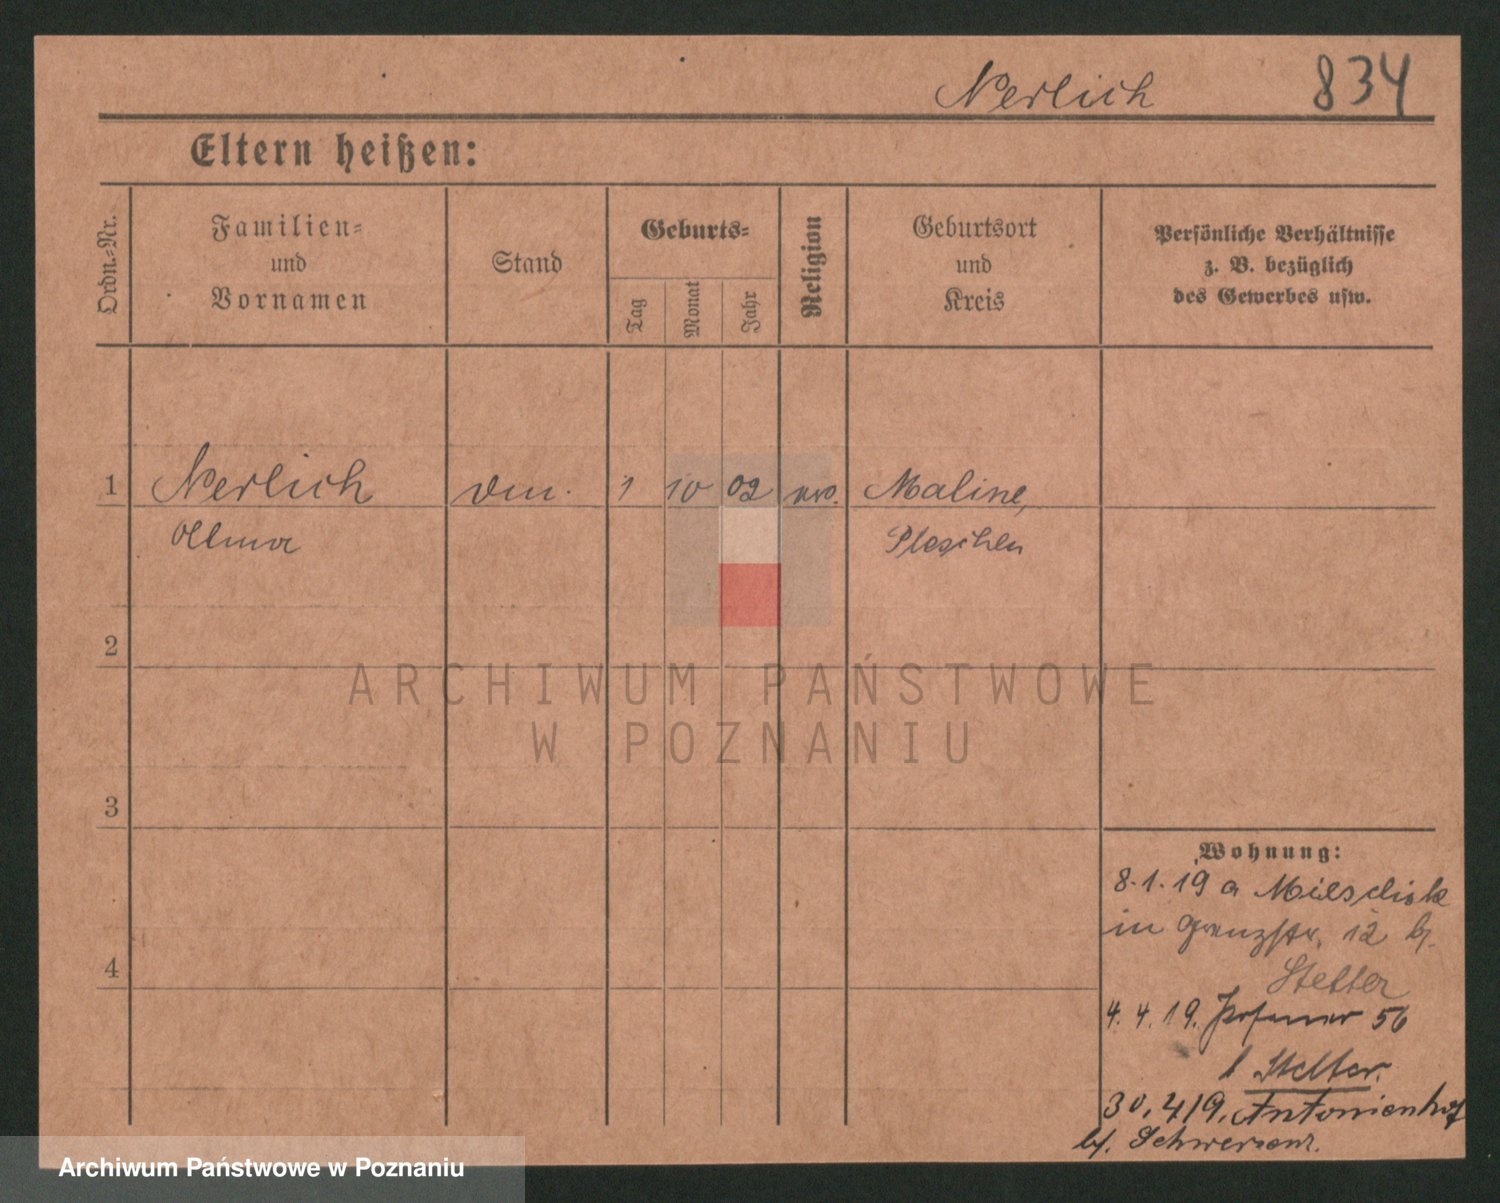 Nerlich 834
Eltern heißen:
Ordn.-Nr.
Familien-
und
Vornamen
Stand
Geburts-
Tag
Monat
Jahr
Religion
Geburtsort
und
Kreis
Persönliche Verhältnisse
z. B. bezüglich
des Gewerbes usw.
1 Nerlich 1 10 02 Maline,
Pleschen
2
3
4
Wohnung:
8.1.19 a
in Grenzstr. 12 b/.
Stelter
4. 4. 19. Posener 56
Stelter.
30. 4 19. Antonienhof
b/. Schwersenz.
ARCHIWUM PAŃSTWOWE
W POZNANIU
Archiwum Państwowe w Poznaniu